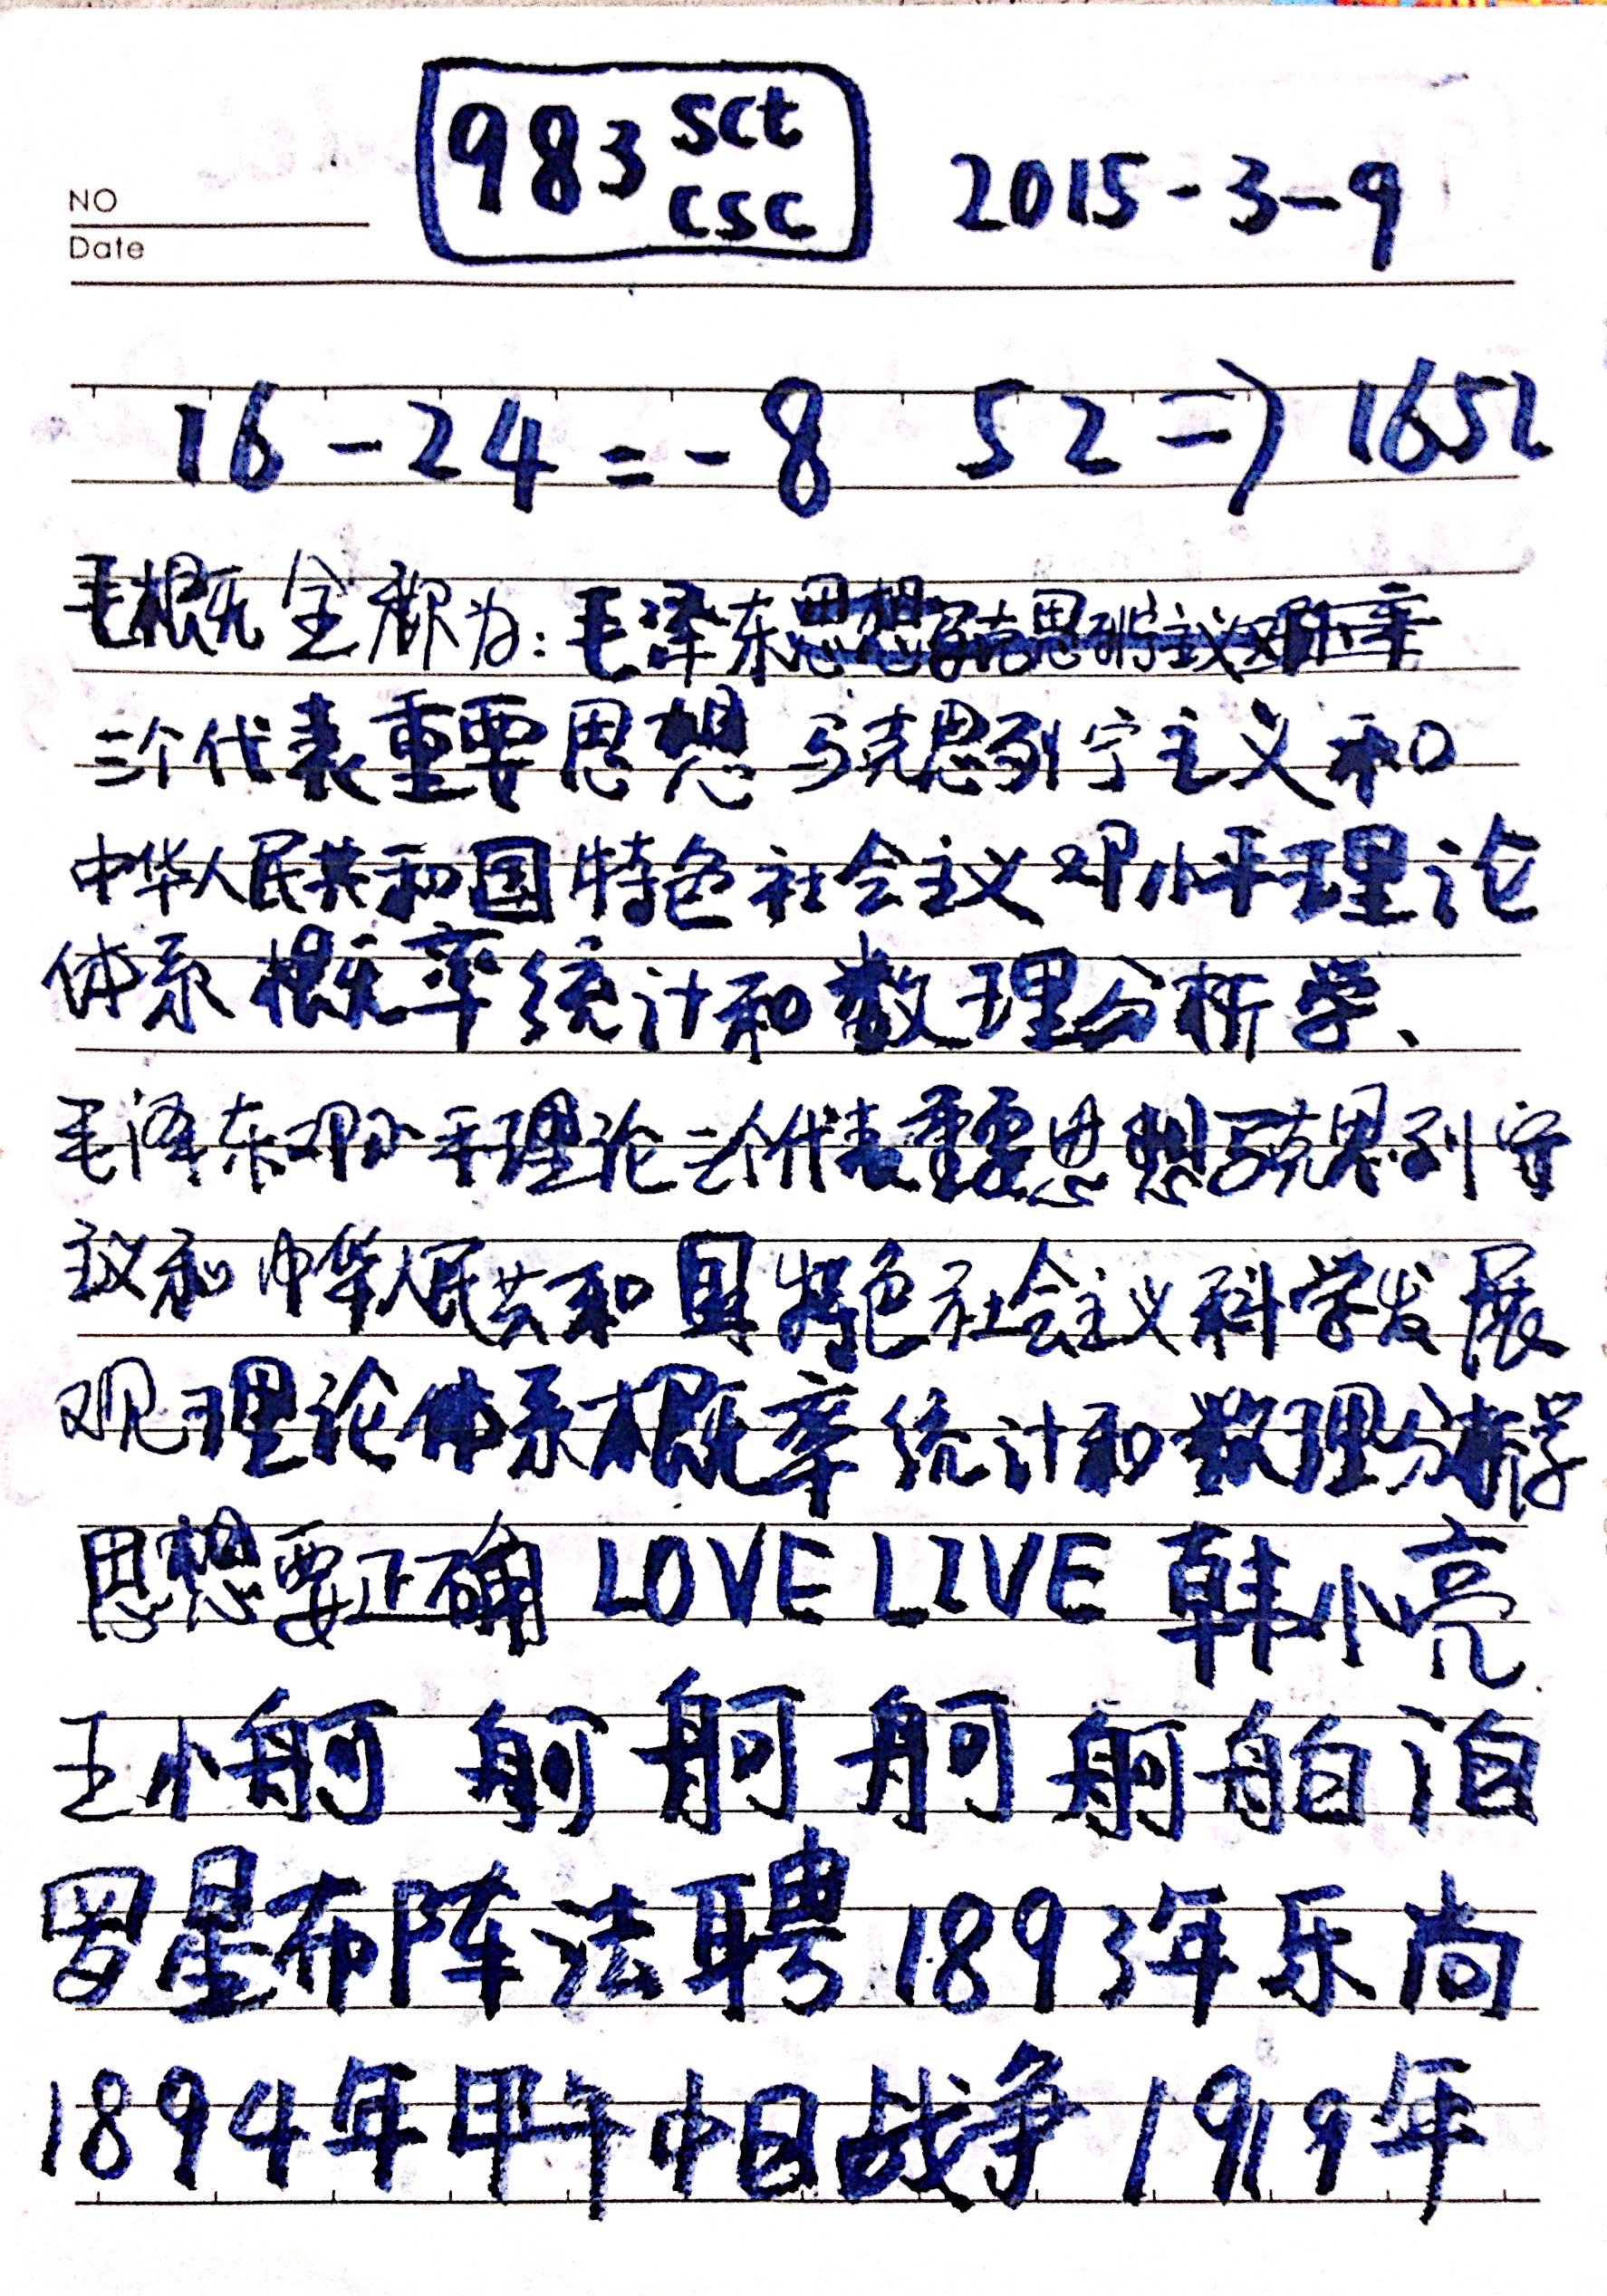 983 sct csc 2015-3-9
NO
Date
16-24=-8 52=) 1652
毛概 全称为:毛泽东思想马克思列宁主义邓小平
三个代表重要思想 马克思列宁主义和
中华人民共和国特色社会主义 邓小平理论
体系 概率统计和数理分析学、
毛泽东邓小平理论三个代表重要思想马克思列宁
主义和中华人民共和国特色社会主义科学发展
观理论体系概率统计和数理分析学
思想要正确 LOVE LIVE 韩小亮
王小舸 舸 舸 舸 舸 舶 泊
罗星布阵法聘1893年乐尚
1894年甲午中日战争1919年